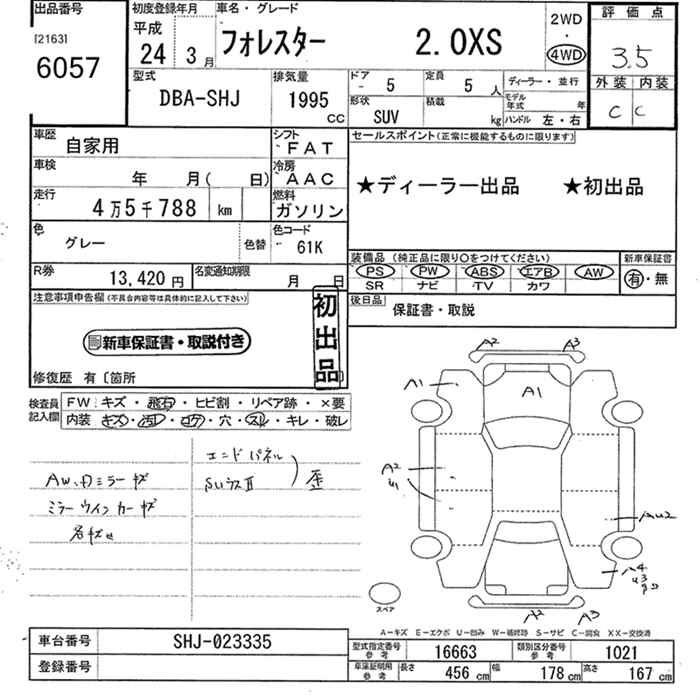 出品番号
[2163]
6057
初度登録年月
平成
24 3月
車名・グレード
フォレスター 2.0XS
2WD
・
4WD
評価点
3.5
外装 内装
C C
型式
DBA-SHJ
排気量
1995
CC
ドア
5
定員
5人
ディーラー・並行
形状
SUV
積載
kg
モデル年式 年
ハンドル 左・右
車歴
自家用
シフト
FAT
セールスポイント(正常に機能するものに限ります)
★ディーラー出品 ★初出品
車検
年 月( 日)
冷房
AAC
走行
4万5千788 km
燃料
ガソリン
色
グレー
色替
色コード
61K
装備品(純正品に限り○をつけてください)
PS PW ABS エアB AW
SR ナビ TV カワ
新車保証書
有・無
R券
13,420円
名変通知期限
月 日
後日品
保証書・取説
注意事項申告欄(不具合内容等は具体的に記入して下さい)
新車保証書・取説付き
初出品
修復歴 有〔箇所
検査員記入欄
FW: キズ・飛石・ヒビ割・リペア跡・×要
内装 キズ・汚レ・コゲ・穴・スレ・キレ・破レ
エンドパネル
AW、ドミラーキズ
歪
ミラーウインカーキズ
A2 A3
A1
A1
A2
AU2
A4
U3
A2 A3
スペア
A-キズ E-エクボ U-凹み W-補修跡 S-サビ C-腐食 XX-交換済
車台番号
SHJ-023335
型式指定番号 参考
16663
類別区分番号 参考
1021
登録番号
車庫証明用 参考
長さ
456 cm
幅
178 cm
高さ
167 cm